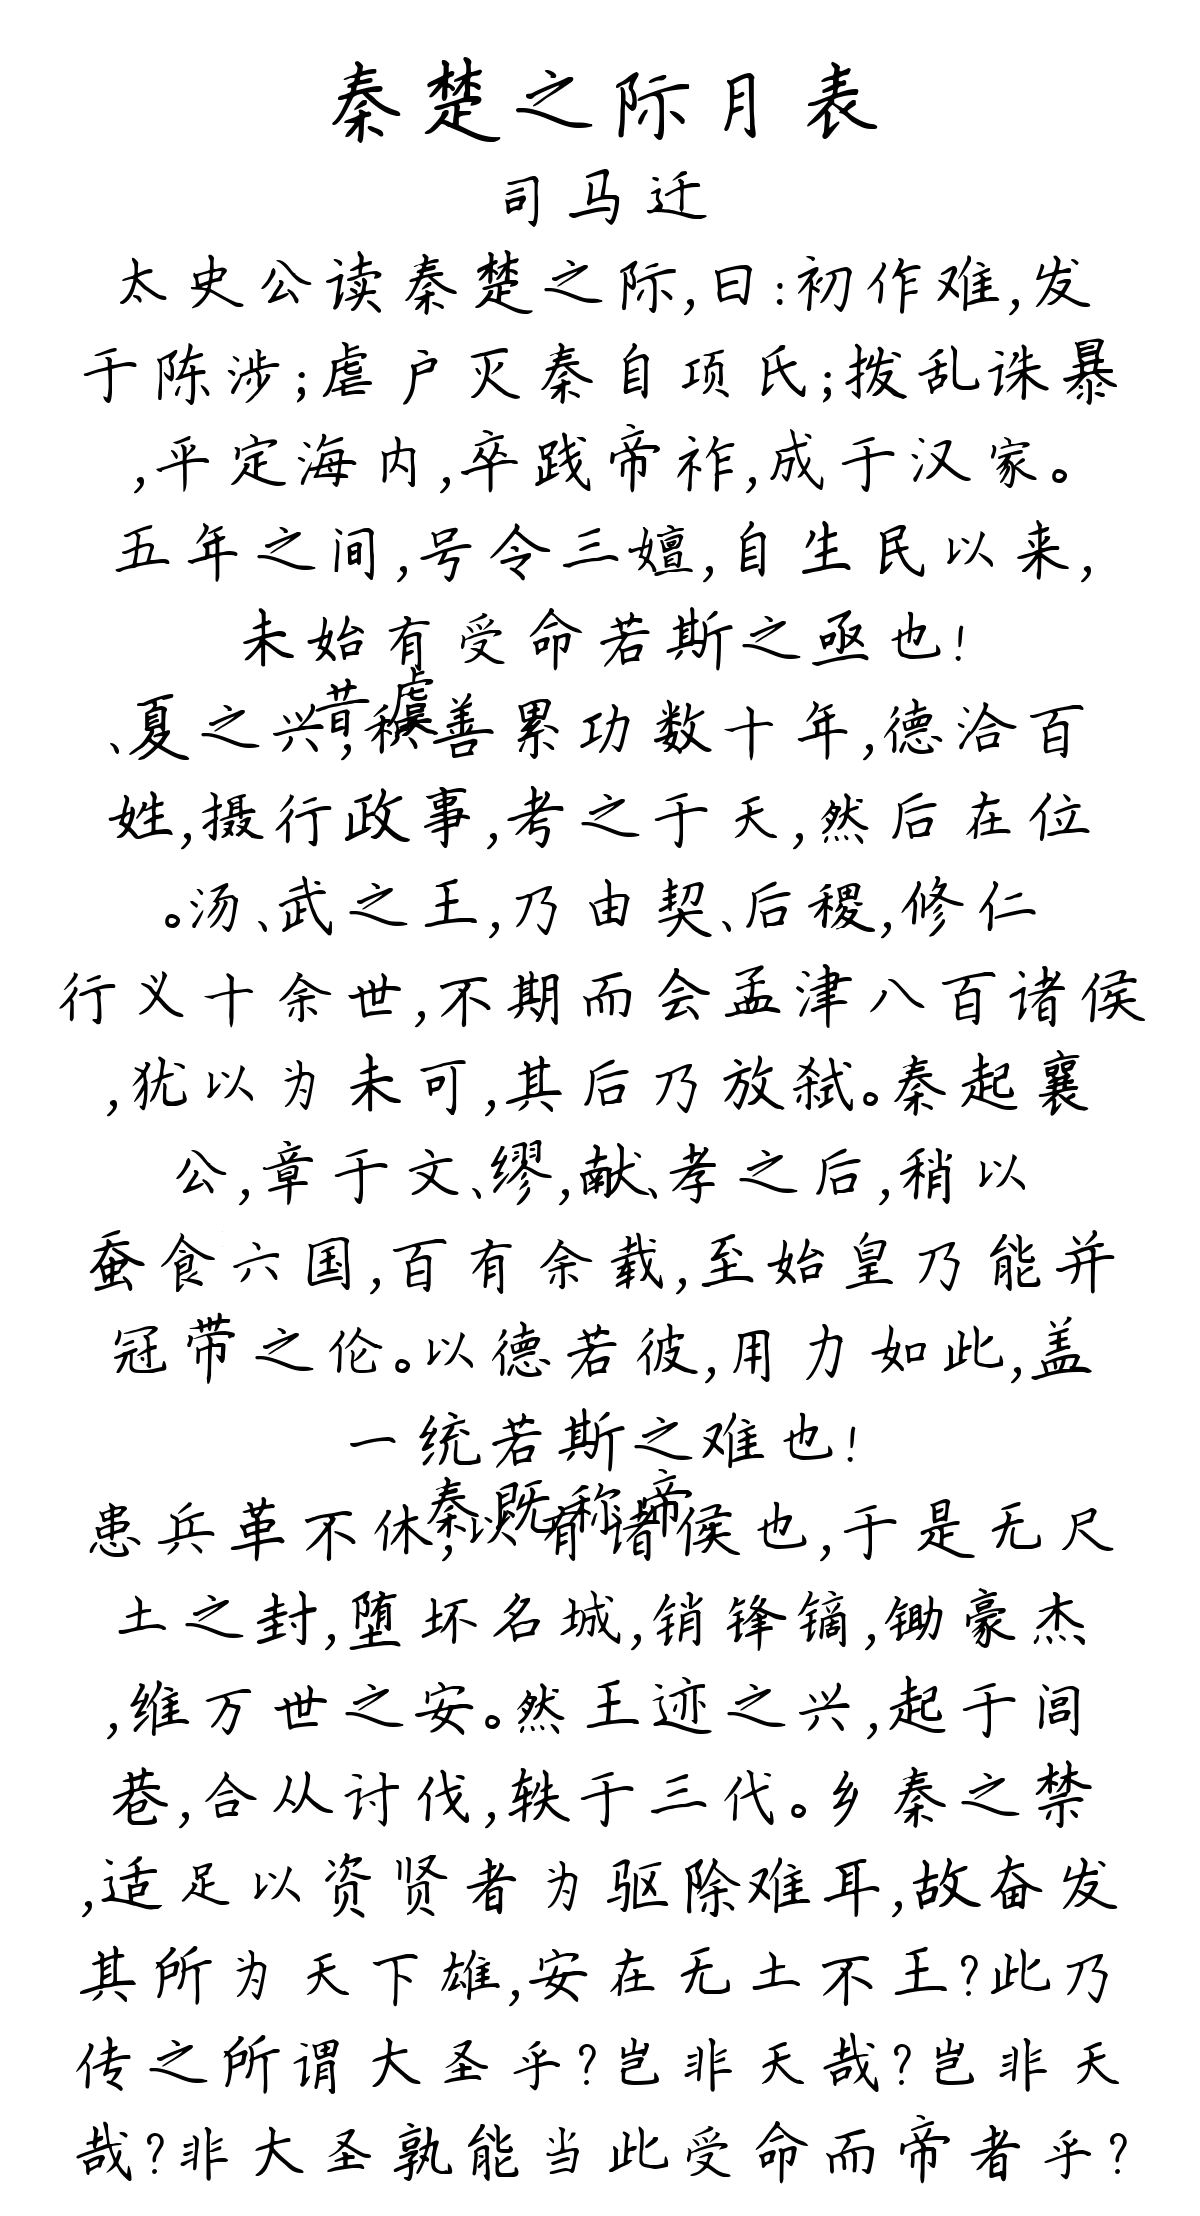 秦楚之际月表
司马迁
太史公读秦楚之际,曰:初作难,发
于陈涉;虐户灭秦自项氏;拨乱诛暴
,平定海内,卒践帝祚,成于汉家。
五年之间,号令三嬗,自生民以来,
未始有受命若斯之亟也!
昔虞
、夏之兴,积善累功数十年,德洽百
姓,摄行政事,考之于天,然后在位
。汤、武之王,乃由契、后稷,修仁
行义十余世,不期而会孟津八百诸侯
,犹以为未可,其后乃放弑。秦起襄
公,章于文、缪,献、孝之后,稍以
蚕食六国,百有余载,至始皇乃能并
冠带之伦。以德若彼,用力如此,盖
一统若斯之难也!
秦既称帝
患兵革不休,以有诸侯也,于是无尺
土之封,堕坏名城,销锋镝,锄豪杰
,维万世之安。然王迹之兴,起于闾
巷,合从讨伐,轶于三代。乡秦之禁
,适足以资贤者为驱除难耳,故奋发
其所为天下雄,安在无土不王?此乃
传之所谓大圣乎?岂非天哉?岂非天
哉?非大圣孰能当此受命而帝者乎?